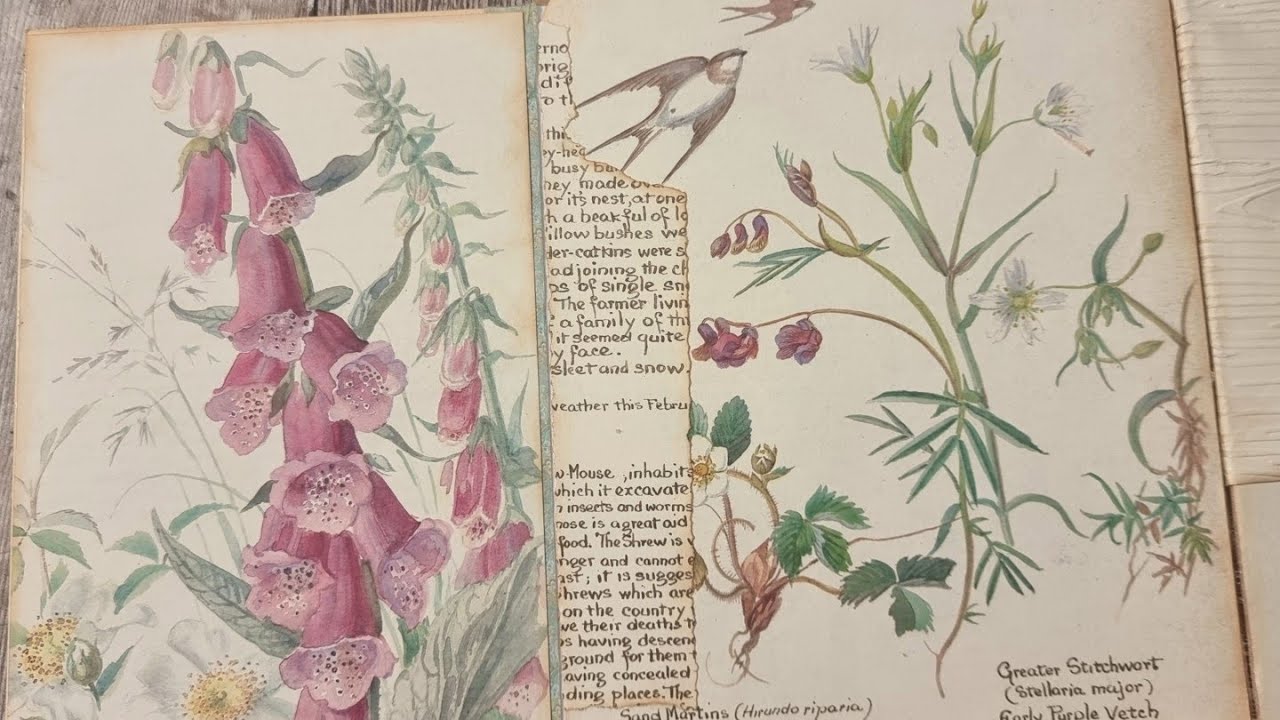 busy
made
or it's nest, at one
h a beakful of
illow bushes we
er-catkins were s
adjoining the ch
s of single sn
The farmer livin
a family of th
it seemed quite
y face.
sleet and snow.
weather this Febru
w-Mouse, inhabits
which it excavate
insects and worms
nose is a great aid
food. The Shrew is
nger and cannot
st; it is sugges
hrews which are
on the country
ve their deaths
s having descen
ground for them
aving concealed
ding places. The
Sand Martins (Hirundo riparia)
Greater Stitchwort
(Stellaria major)
Early Purple Vetch